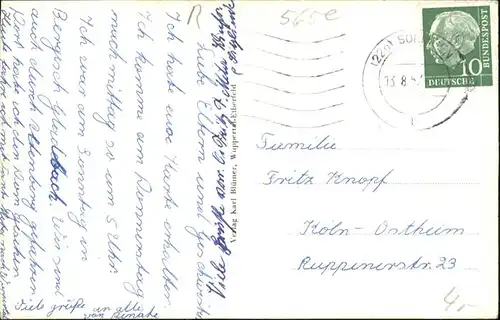 R
565e
Liebe Eltern und Geschwister
Ich habe eure Karte erhalten
Ich komme am Donnerstag
nachmittag so um 5 Uhr.
Ich war am Sonntag in
Bergisch Gladbach. Wir sind
auch durch Altenberg gefahren
Dort habe ich den Dom gesehen
Viele Grüße von
Viele grüße an alle
von Renate
Verlag Karl Blümer, Wuppertal-Elberfeld
13.8.5
DEUTSCHE
BUNDESPOST
10
Familie
Fritz Knopf
Köln-Ostheim
Ruppinerstr. 23
4,-